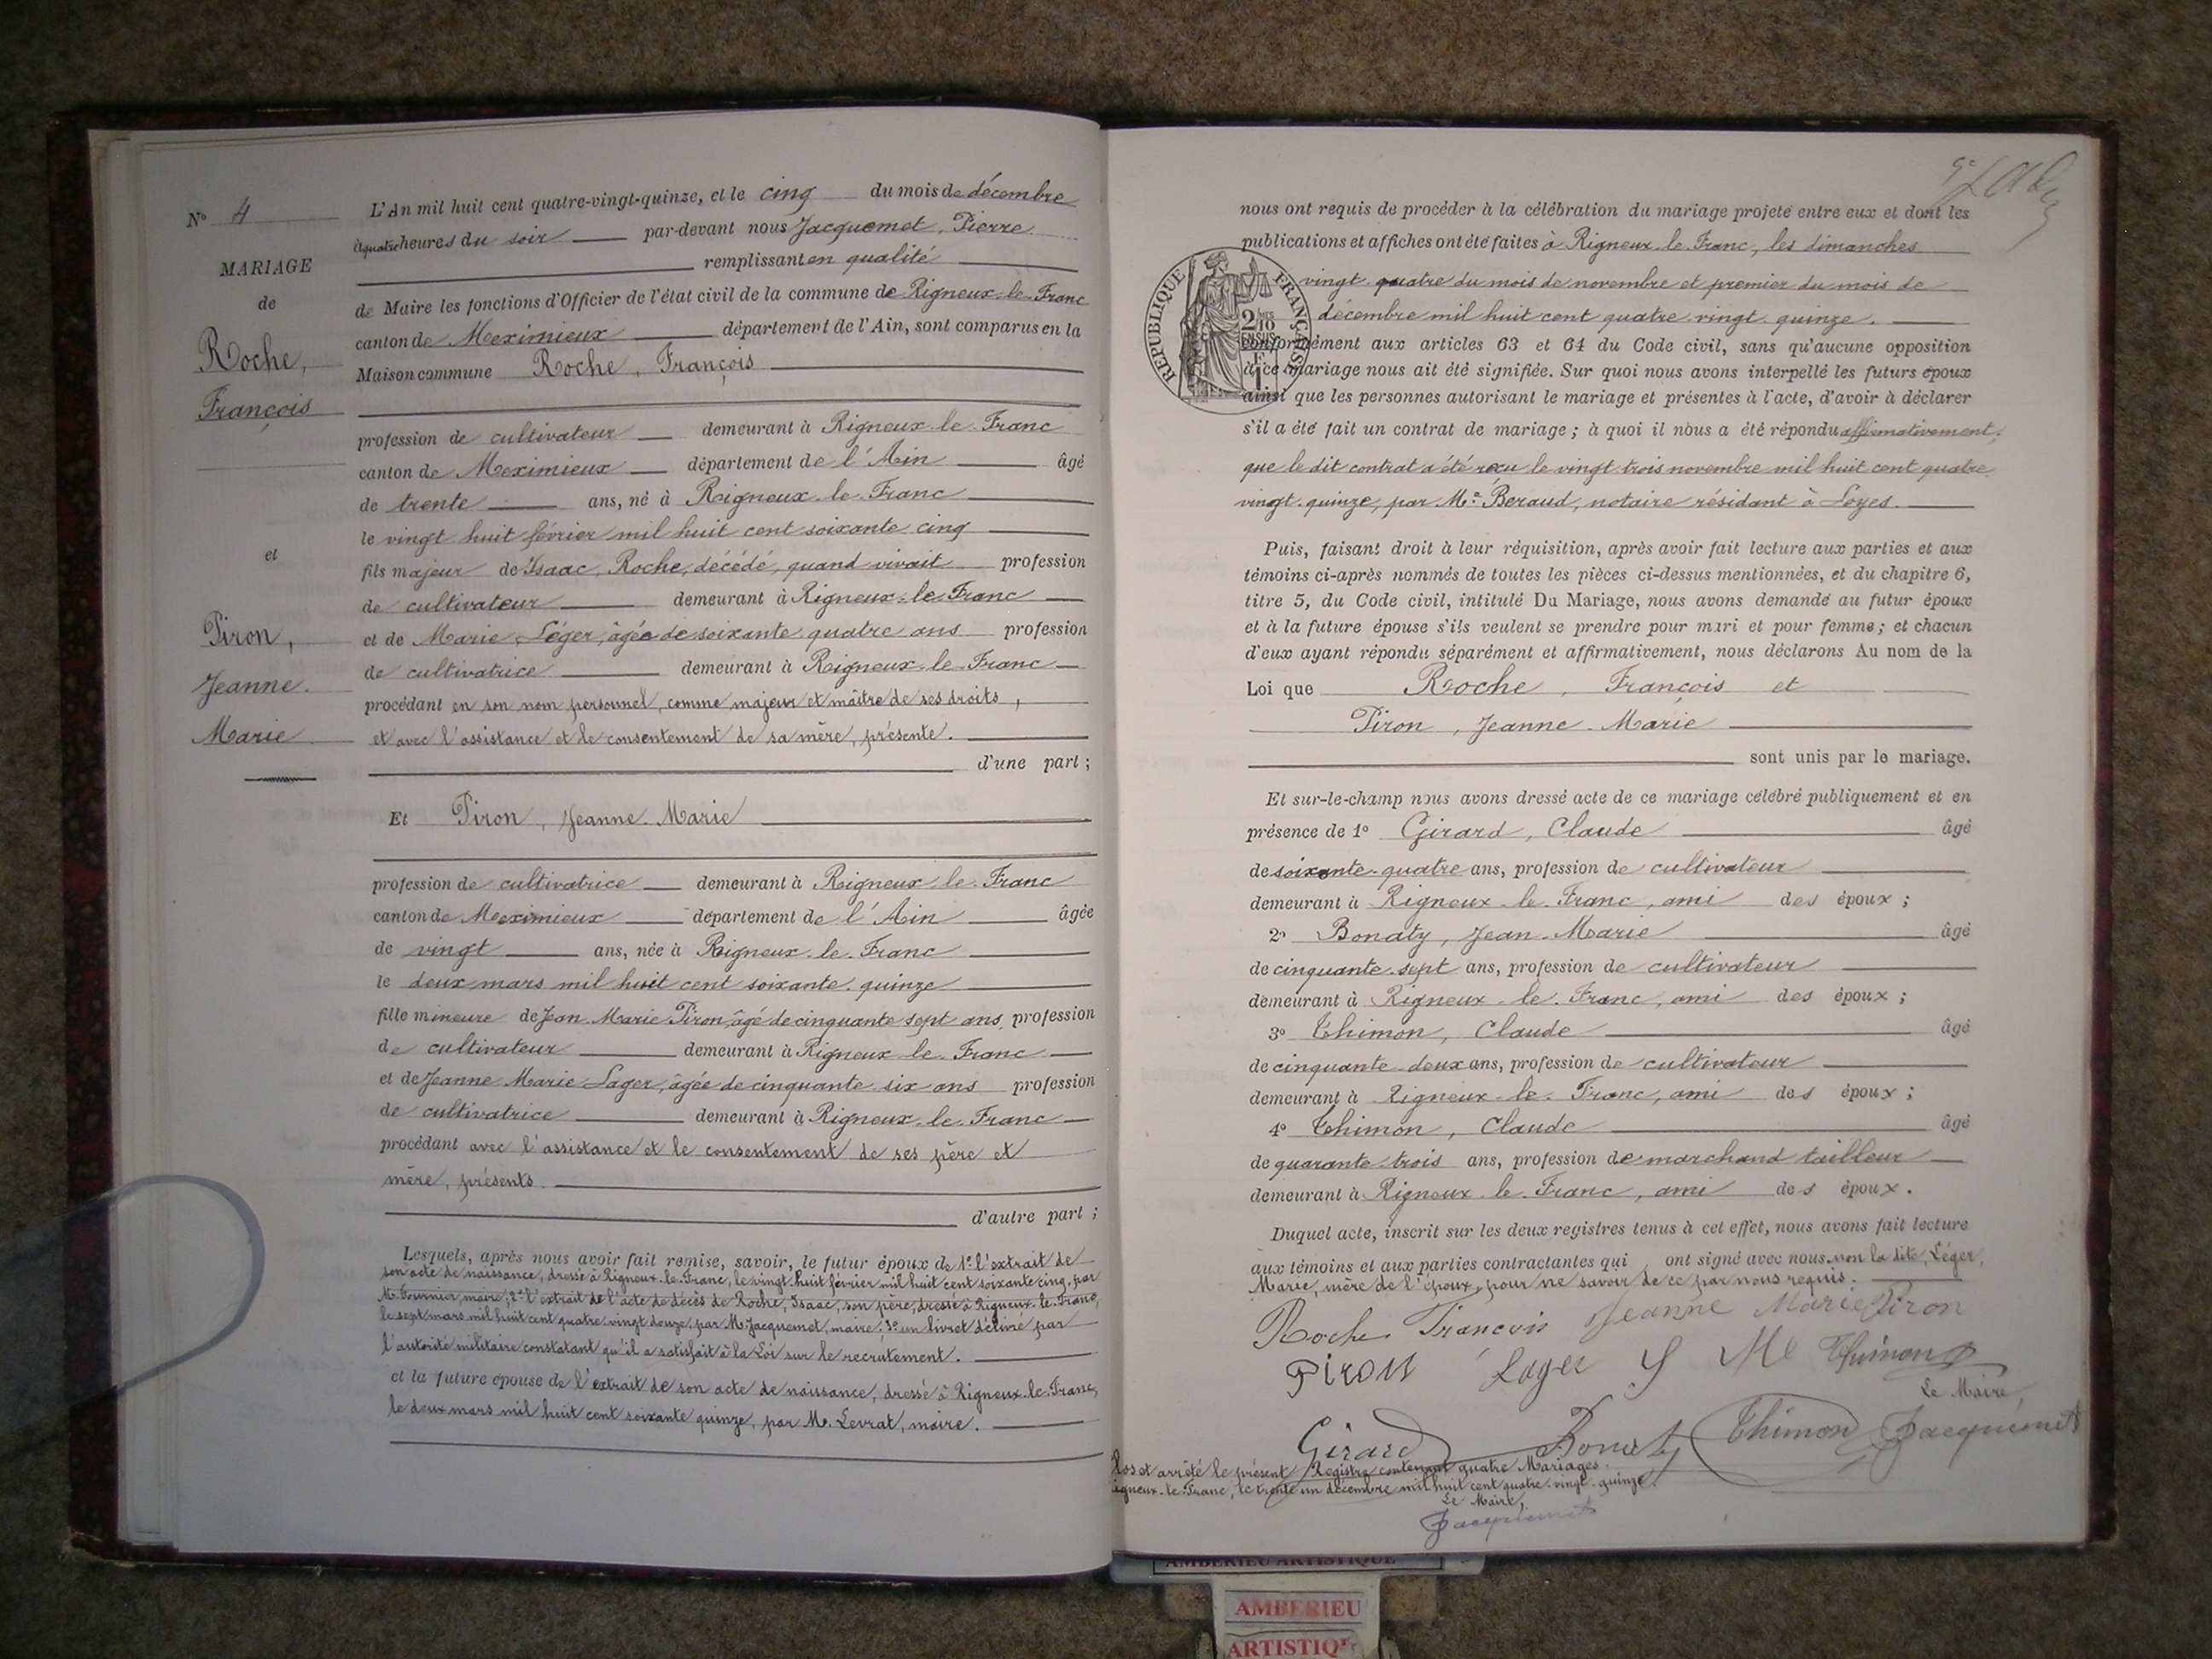 N° 4
MARIAGE
de
Roche,
François
et
Piron,
Jeanne
Marie
L'An mil huit cent quatre-vingt-quinze, et le cinq du mois de décembre
à quatre heures du soir par-devant nous Jacquemet, Pierre
remplissant en qualité
de Maire les fonctions d'Officier de l'état civil de la commune de Rigneux-le-Franc
canton de Meximieux département de l'Ain, sont comparus en la
Maison commune Roche, François
profession de cultivateur demeurant à Rigneux-le-Franc
canton de Meximieux département de l'Ain âgé
de trente ans, né à Rigneux-le-Franc
le vingt huit février mil huit cent soixante cinq
fils majeur de Isaac, Roche, décédé, quand vivait profession
de cultivateur demeurant à Rigneux-le-Franc
et de Marie Léger, âgée de soixante quatre ans profession
de cultivatrice demeurant à Rigneux-le-Franc
procédant en son nom personnel, comme majeur et maître de ses droits,
et avec l'assistance et le consentement de sa mère, présente.
d'une part ;
Et Piron, Jeanne-Marie
profession de cultivatrice demeurant à Rigneux-le-Franc
canton de Meximieux département de l'Ain âgée
de vingt ans, née à Rigneux-le-Franc
le deux mars mil huit cent soixante-quinze
fille mineure de Jean-Marie Piron, âgé de cinquante sept ans, profession
de cultivateur demeurant à Rigneux-le-Franc
et de Jeanne-Marie Lager, âgée de cinquante-six ans profession
de cultivatrice demeurant à Rigneux-le-Franc
procédant avec l'assistance et le consentement de ses père et
mère, présents.
d'autre part ;
Lesquels, après nous avoir fait remise, savoir, le futur époux de 1° l'extrait de
son acte de naissance, dressé à Rigneux-le-Franc, le vingt-huit février mil huit cent soixante cinq, par
M. Fournier, maire; 2° l'extrait de l'acte de décès de Roche, Isaac, son père, dressé à Rigneux-le-Franc,
le sept mars mil huit cent quatre-vingt douze, par M. Jacquemet, maire; 3° un livret délivré par
l'autorité militaire constatant qu'il a satisfait à la Loi sur le recrutement.
et la future épouse de l'extrait de son acte de naissance, dressé à Rigneux-le-Franc,
le deux mars mil huit cent soixante quinze, par M. Levrat, maire.
nous ont requis de procéder à la célébration du mariage projeté entre eux et dont les
publications et affiches ont été faites à Rigneux-le-Franc, les dimanches
vingt-quatre du mois de novembre et premier du mois de
décembre mil huit cent quatre-vingt-quinze.
RÉPUBLIQUE FRANÇAISE
2/10 EN SUS
conformément aux articles 63 et 64 du Code civil, sans qu'aucune opposition
à ce mariage nous ait été signifiée. Sur quoi nous avons interpellé les futurs époux
ainsi que les personnes autorisant le mariage et présentes à l'acte, d'avoir à déclarer
s'il a été fait un contrat de mariage ; à quoi il nous a été répondu affirmativement,
que le dit contrat a été reçu le vingt trois novembre mil huit cent quatre
vingt-quinze, par Me Beraud, notaire résidant à Loyes.
Puis, faisant droit à leur réquisition, après avoir fait lecture aux parties et aux
témoins ci-après nommés de toutes les pièces ci-dessus mentionnées, et du chapitre 6,
titre 5, du Code civil, intitulé Du Mariage, nous avons demandé au futur époux
et à la future épouse s'ils veulent se prendre pour mari et pour femme ; et chacun
d'eux ayant répondu séparément et affirmativement, nous déclarons Au nom de la
Loi que Roche, François et
Piron, Jeanne-Marie
sont unis par le mariage.
Et sur-le-champ nous avons dressé acte de ce mariage célébré publiquement et en
présence de 1° Girard, Claude âgé
de soixante-quatre ans, profession de cultivateur
demeurant à Rigneux-le-Franc, ami des époux ;
2° Bonaty, Jean-Marie âgé
de cinquante-sept ans, profession de cultivateur
demeurant à Rigneux-le-Franc, ami des époux ;
3° Thimon, Claude âgé
de cinquante-deux ans, profession de cultivateur
demeurant à Rigneux-le-Franc, ami des époux ;
4° Thimon, Claude âgé
de quarante-trois ans, profession de marchand tailleur
demeurant à Rigneux-le-Franc, ami des époux.
Duquel acte, inscrit sur les deux registres tenus à cet effet, nous avons fait lecture
aux témoins et aux parties contractantes qui ont signé avec nous, non la dite, Léger,
Marie, mère de l'époux, pour ne savoir de ce par nous requis.
Roche François Jeanne Marie Piron
Piron Lager J M Thimon
Le Maire,
Girard Bonaty Thimon Jacquemet
Clos et arrêté le présent Registre contenant quatre Mariages.
Rigneux-le-Franc, le trente un décembre mil huit cent quatre-vingt-quinze.
Le Maire,
Jacquemet
AMBERIEU ARTISTIQUE
AMBERIEU
ARTISTIQUE